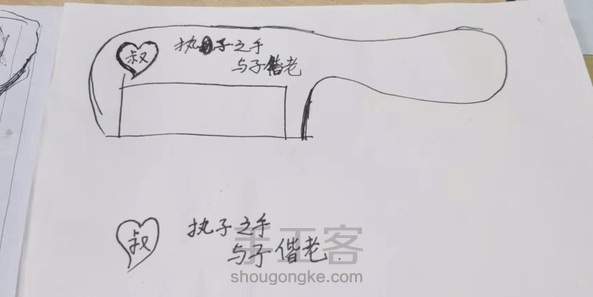 叔
执子之手
与子偕老
叔
执子之手
与子偕老
手工客
shougongke.com